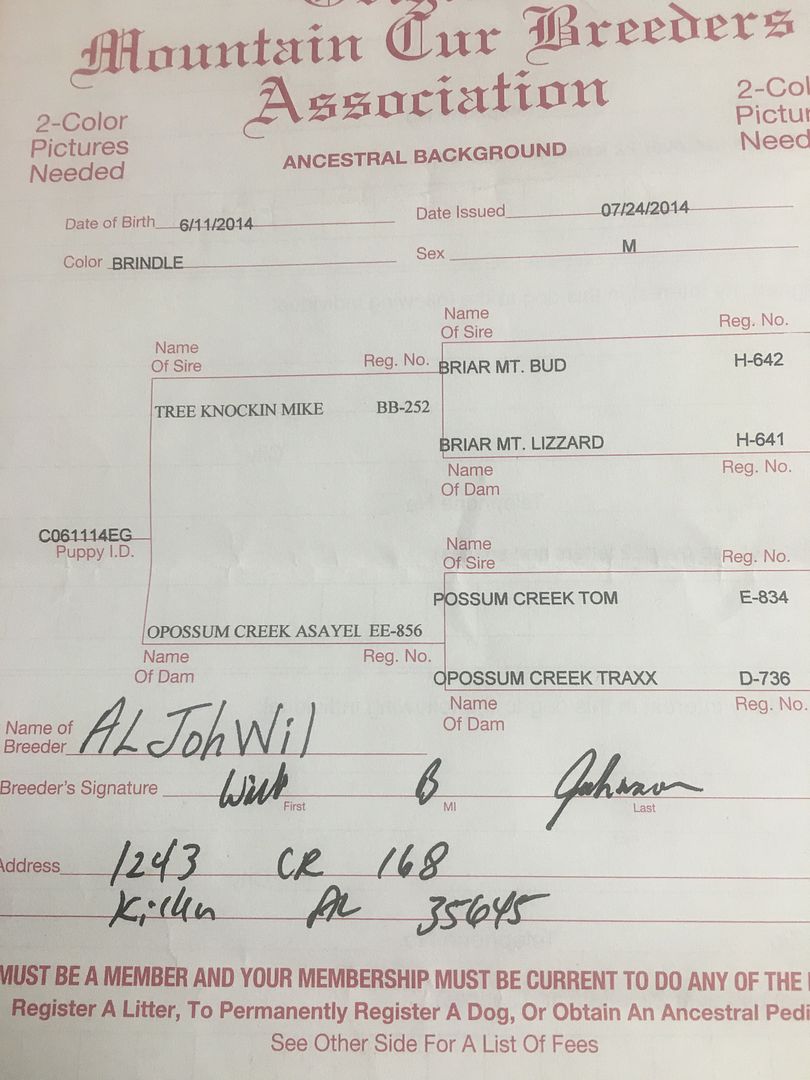 Mountain Cur Breeders
Association
2-Color
Pictures
Needed
ANCESTRAL BACKGROUND
Date of Birth 6/11/2014
Date Issued 07/24/2014
Color BRINDLE
Sex M
Name
Of Sire
Reg. No.
Name
Of Sire
Reg. No.
BRIAR MT. BUD H-642
TREE KNOCKIN MIKE BB-252
BRIAR MT. LIZZARD H-641
Name
Of Dam
Reg. No.
C061114EG
Puppy I.D.
Name
Of Sire
Reg. No.
POSSUM CREEK TOM E-834
OPOSSUM CREEK ASAYEL EE-856
Name
Of Dam
Reg. No.
OPOSSUM CREEK TRAXX D-736
Name
Of Dam
Reg. No.
Name of
Breeder AL Joh Wil
Breeder's Signature B Johnson
First MI Last
Address 1243 CR 168
AL 35645
MUST BE A MEMBER AND YOUR MEMBERSHIP MUST BE CURRENT TO DO ANY OF THE
Register A Litter, To Permanently Register A Dog, Or Obtain An Ancestral Pedi
See Other Side For A List Of Fees